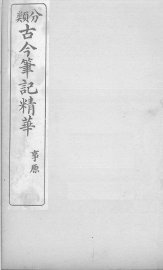 分類
古今筆記精華
事原